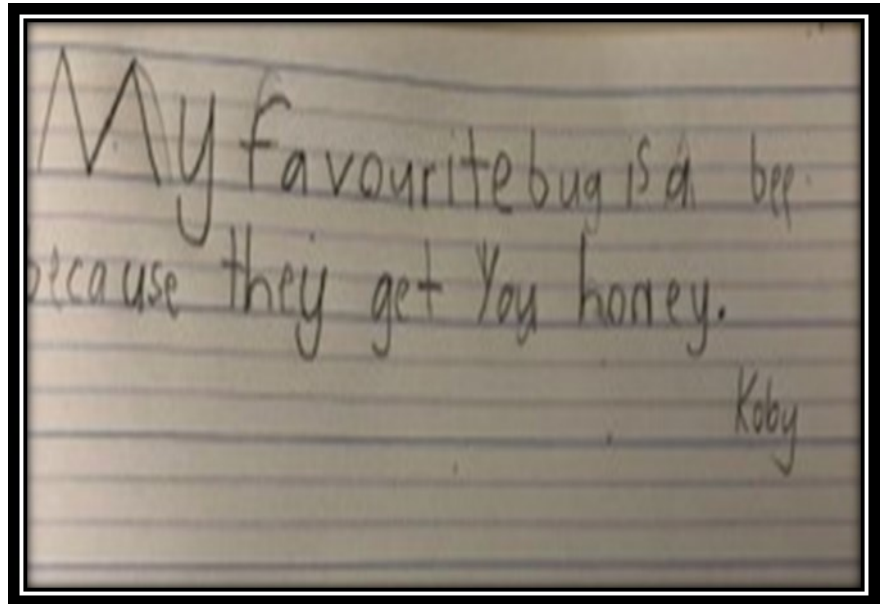 My favourite bug is a bee
because they get You honey.
Koby